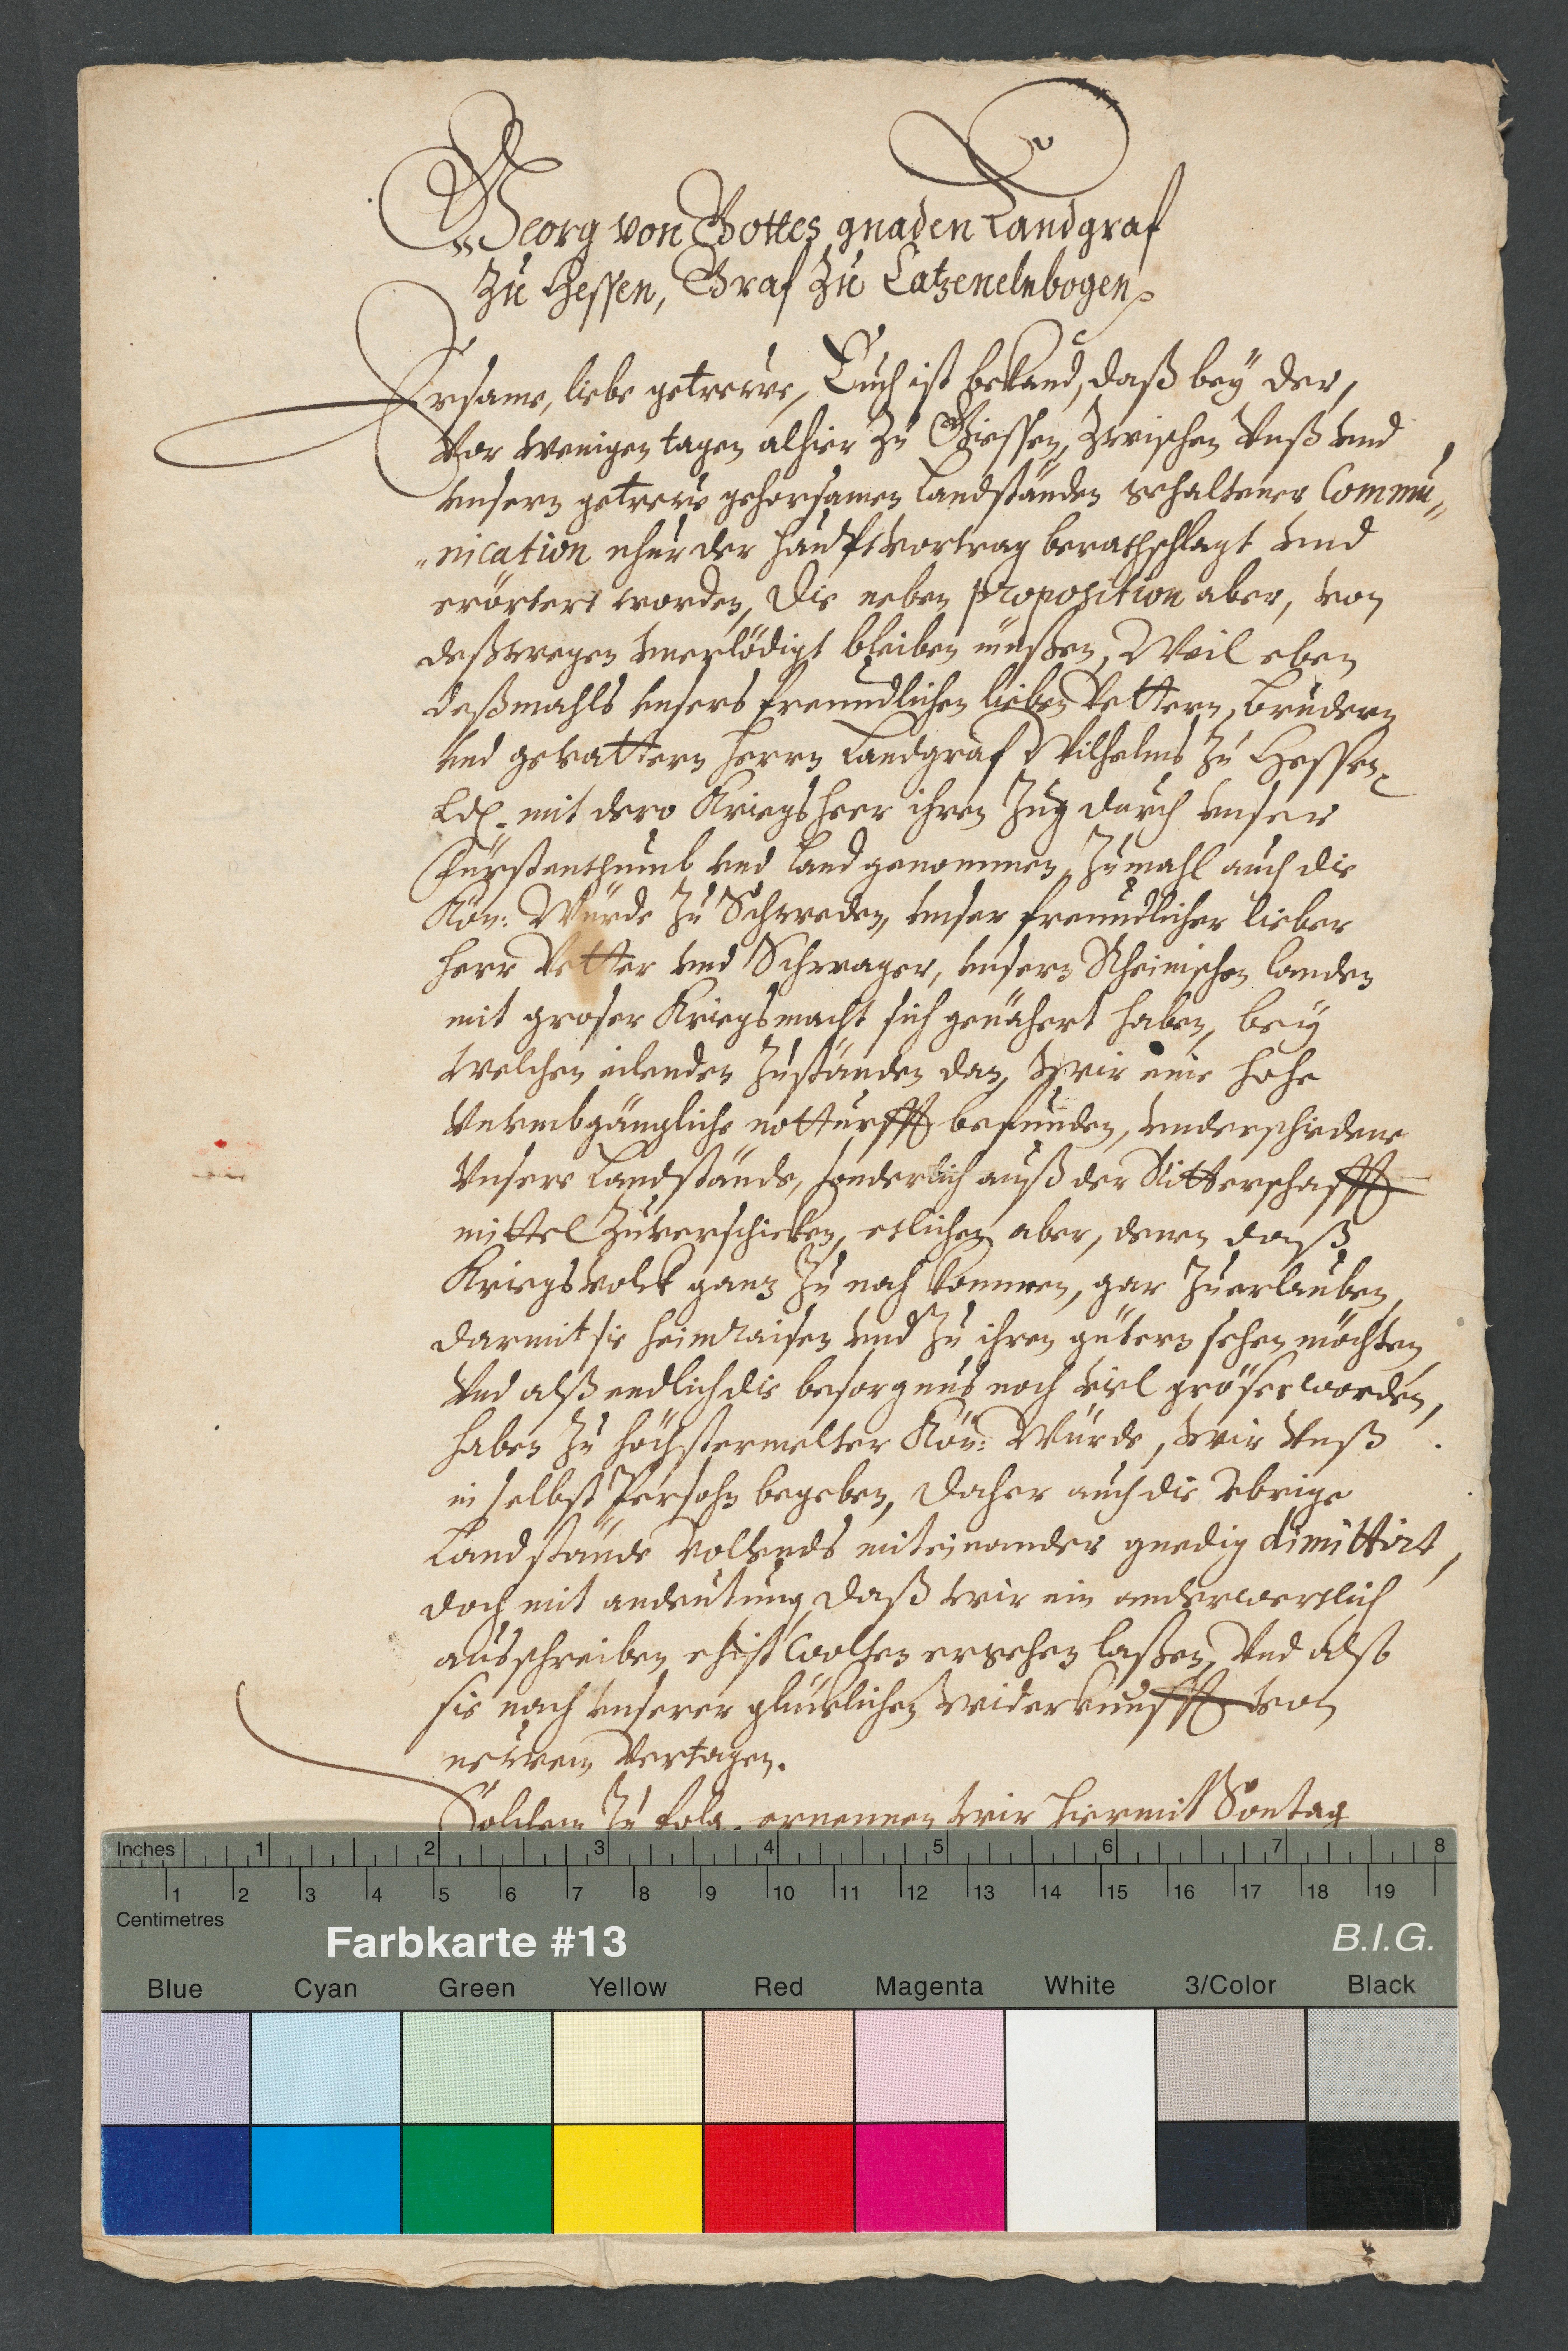 Georg von Gottes gnaden Landgraf
zu Hessen, Graf zu Catzenelnbogen
Ersame, liebe getrewe, Euch ist bekand, daß bey der,
vor wenigen tagen alhier zu Giessen, zwischen Vnß vnd
vnsern getrew gehorsamen Landständen gehaltener Commu„
„nication nhur der haubtvortrag berathschlagt vnd
erörtert worden, die neben proposition aber, von
deßwegen vnerlödigt bleiben müßen, Weil eben
deßmahls vnsers freundlichen lieben Vettern, Brudern
vnd gevattern Herrn Landgraf Wilhelms zu Hessen
Ld. mit dero Kriegsheer ihren Zug durch vnser
Fürstenthumb vnd Land genommen, zumahl auch die
Kön: Würde zu Schweden, vnser freundlicher lieber
Herr Vetter vnd Schwager, vnsern Rheinischen landen
mit groser Kriegsmacht sich genähert haben, bey
welchen eilenden zuständen dan, Wir eine hohe
vnvmbgängliche notturfft befunden, vnderschiedene
Vnsere Landstände, sonderlich auß der Ritterschafft
mittel zuverschicken, etlichen aber, denen daß
Kriegsvolck ganz zu nah kommen, gar zuerlauben,
darmit sie heimraisen vnd zu ihren gütern sehen möchten,
Vnd alß endlich die besorgnus noch viel gröser worden,
haben zu höchstermelter Kön: Würde, wir Vnß
in selbst Persohn begeben, daher auch die vbrige
Landstände vollends miteinander gnedig dimittirt,
doch mit andeutung daß wir ein anderwertlich
ausschreiben ehist wolten ergehen laßen, Vnd alß
sie nach vnserer glücklichen widerkunfft von
newem vertagen.
Solchem zu folg. ernennen wir hiermit Sontag
Inches 1 2 3 4 5 6 7 8
1 2 3 4 5 6 7 8 9 10 11 12 13 14 15 16 17 18 19
Centimetres
Farbkarte #13 B.I.G.
Blue Cyan Green Yellow Red Magenta White 3/Color Black